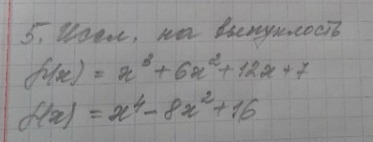 5. Иссл. на выпуклость
f(x) = x³ + 6x² + 12x + 7
f(x) = x⁴ - 8x² + 16